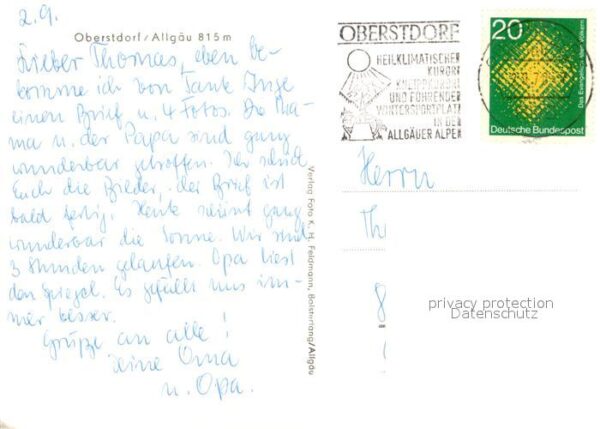 2.9.
Oberstdorf/Allgäu 815m
Lieber Thomas, eben be-
komme ich von Tante Inge
einen Brief u. 4 Fotos. Die Ma-
ma u. der Papa sind ganz
wunderbar getroffen. Ich schick
Euch die Bilder, der Brief ist
bald fertig. Heute scheint ganz
wunderbar die Sonne. Wir sind
3 Stunden gelaufen. Opa liest
den Spiegel. Es gefällt uns im-
mer besser.
Grüße an alle!
Deine Oma
u. Opa.
Verlag Foto K. H. Feldmann, Bolsterlang/Allgäu
OBERSTDORF
HEILKLIMATISCHER
KURORT
KNEIPPKURORT
UND FÜHRENDER
WINTERSPORTPLATZ
IN DEN
ALLGÄUER ALPEN
20
Das Evangelium den Völkern
Deutsche Bundespost
Herrn
Th
8
privacy protection
Datenschutz